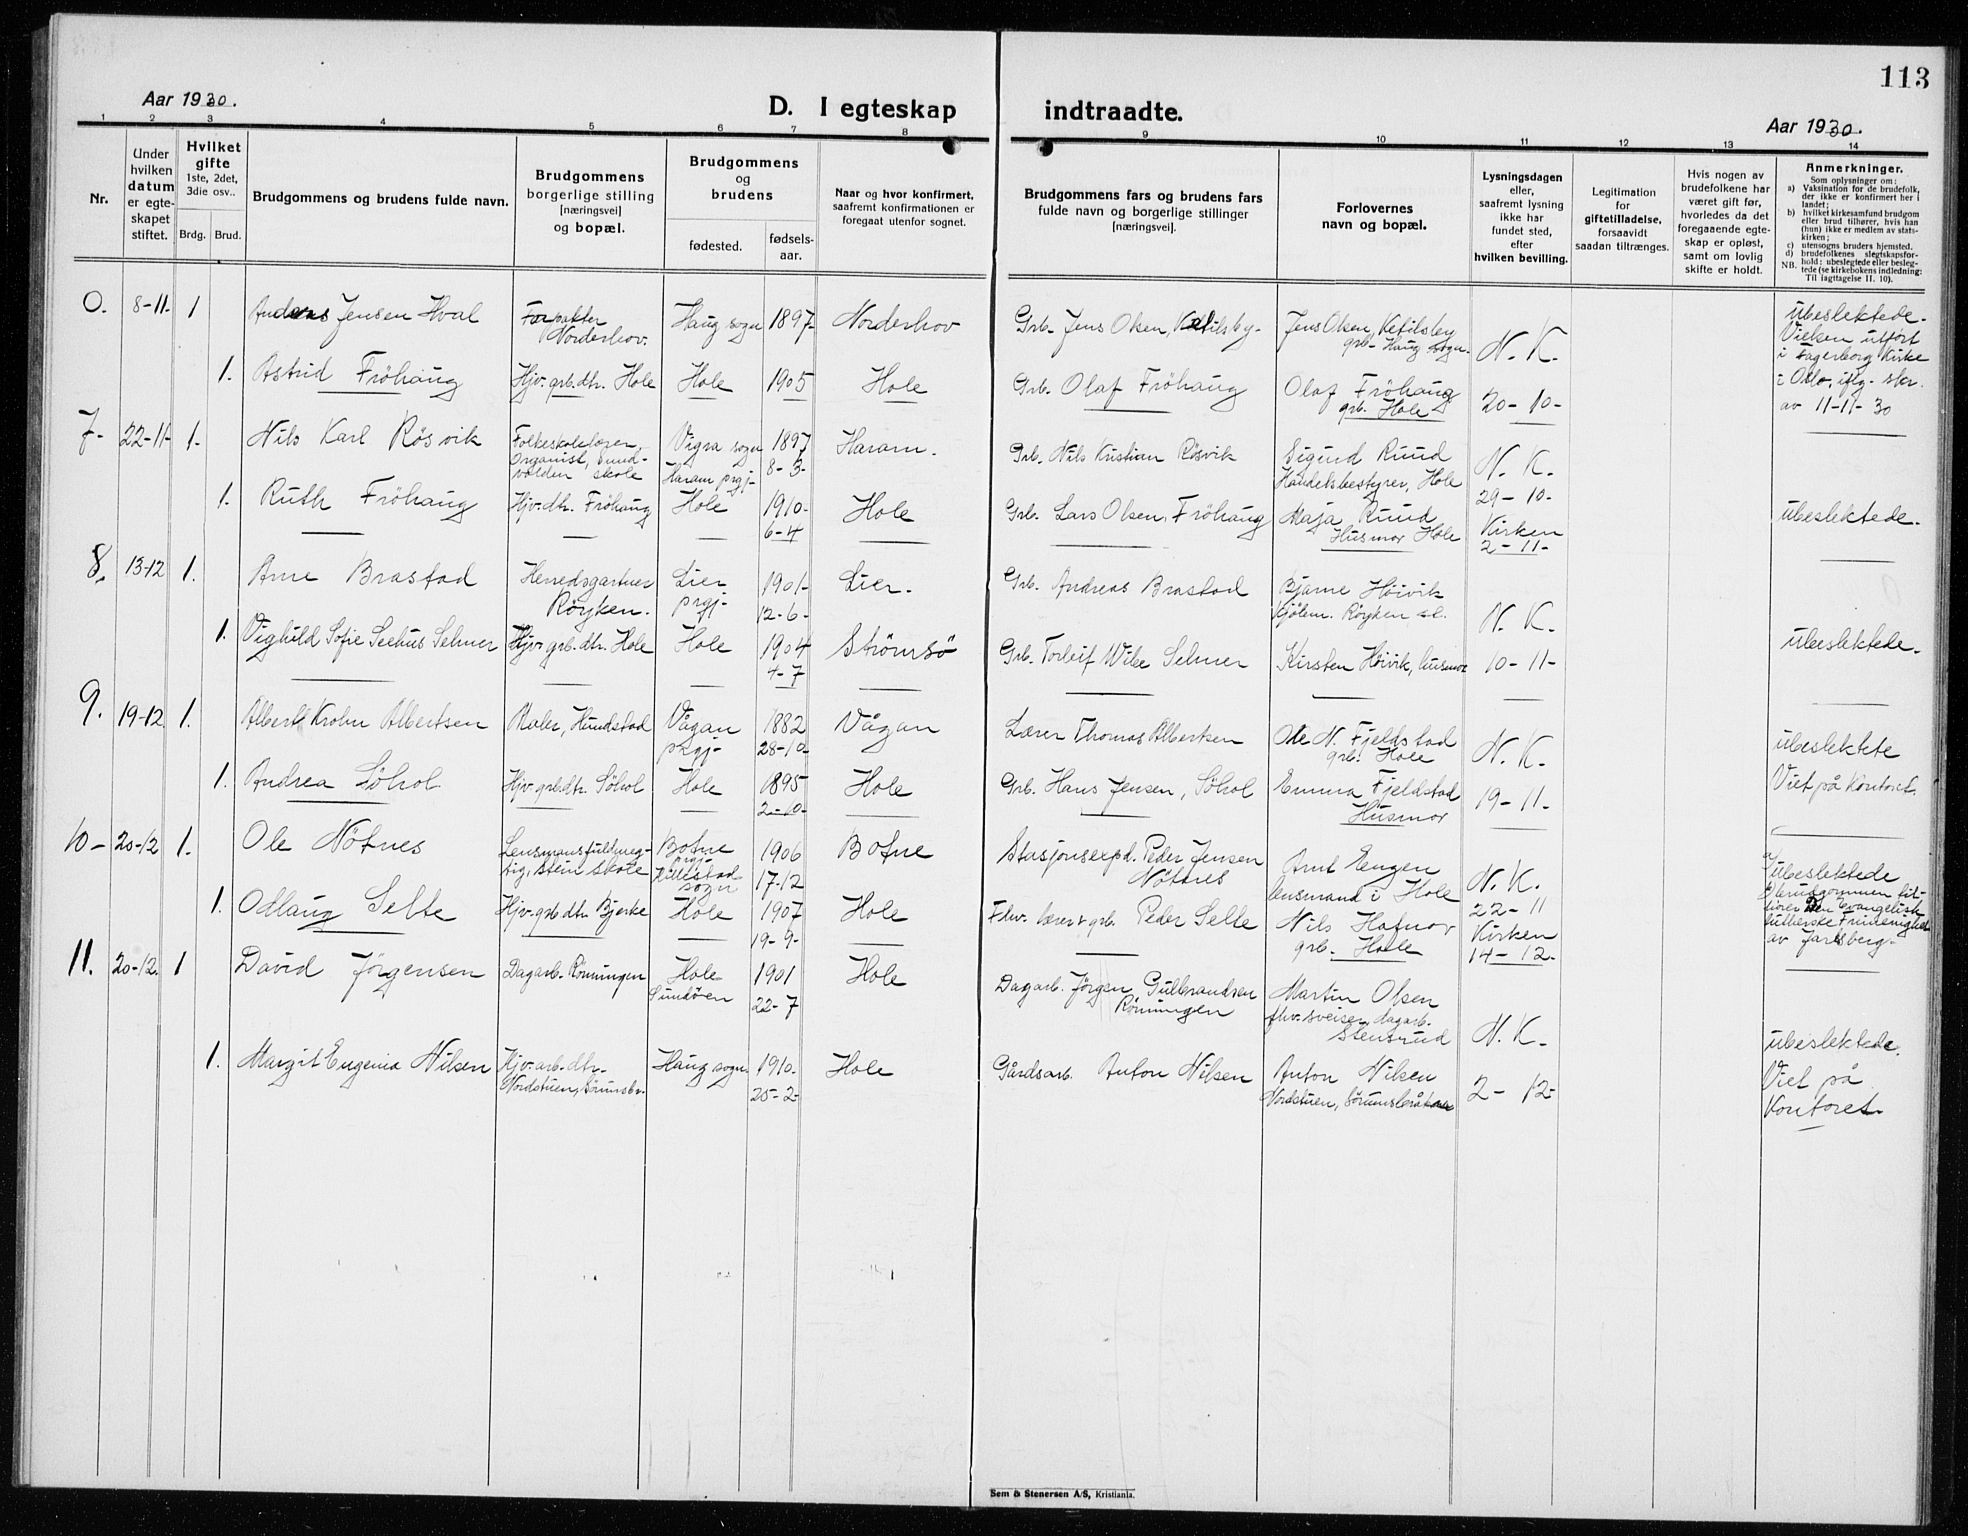 113
Aar 1930.
D. I egteskap indtraadte.
Aar 1930.
1 2 3 4 5 6 7 8 9 10 11 12 13 14
Nr.
Under hvilken datum er egteskapet stiftet.
Hvilket gifte 1ste, 2det, 3die osv..
Brdg. Brud.
Brudgommens og brudens fulde navn.
Brudgommens borgerlige stilling [næringsvei] og bopæl.
Brudgommens og brudens
fødested. fødselsaar.
Naar og hvor konfirmert, saafremt konfirmationen er foregaat utenfor sognet.
Brudgommens fars og brudens fars fulde navn og borgerlige stillinger [næringsvei].
Forlovernes navn og bopæl.
Lysningsdagen eller, saafremt lysning ikke har fundet sted, efter hvilken bevilling.
Legitimation for giftetilladelse, forsaavidt saadan tiltrænges.
Hvis nogen av brudefolkene har været gift før, hvorledes da det foregaaende egteskap er opløst, samt om lovlig skifte er holdt.
Anmerkninger.
Som oplysninger om:
a) Vaksination for de brudefolk, der ikke er konfirmert her i landet;
b) hvilket kirkesamfund brudgom eller brud tilhører, hvis han (hun) ikke er medlem av statskirken;
c) utensogns bruders hjemsted.
d) brudefolkenes slegtskapsforhold: ubeslegtede eller beslegtede (se kirkebokens indledning:
NB. Til iagttagelse II. 10).
0. 8-11- 1 Anders Jensen Hval Forpakter Norderhov. Haug sogn 1897- Norderhov Grb- Jens Olsen, Ketilsby- Jens Olsen, Ketilsby grb- Haug sogn. N. K. ubeslektede. Vielsen utført i Fagerborg Kirke
1. Astrid Fröhaug Hjv. grb. dtr. Hole Hole 1905 Hole Grb. Olaf Fröhaug Olaf Fröhaug grb. Hole 20-10- i Oslo, iflg. skr. av 11-11-30
7- 22-11- 1- Nils Karl Rösvik Folkeskolelærer, Organist, Sundvolden skole Vigra sogn Haram prgj- 1897 8-3- Haram. Grb. Nils Kristian Rösvik Sigurd Ruud Handelsbestyrer, Hole N. K. 29-10-
1. Ruth Fröhaug Hjv. dtr. Fröhaug Hole 1910- 6-4 Hole Grb. Lars Olsen, Fröhaug Maja Ruud Husmor Hole Kirken 2-11- ubeslektede.
8. 13-12 1. Arne Brastad Herredsgartner Röyken. Lier prgj- 1901- 12-6- Lier. Grb. Andreas Brastad Bjarne Höivik Röyken st. N. K.
1. Vighild Sofie Seehus Selmer Hjv. grb. dtr. Hole Hole 1904 4-7 Strömsö Grb. Torleif Wibe Selmer Kirsten Höivik, husmor 10-11- ubeslektede.
9. 19-12 1. Albert Krohn Albertsen Maler, Hundstad Vågan prgj- 1882 28-10- Vågan Lærer Thomas Albertsen Ole N. Fjeldstad grb. Hole N. K. ubeslektete
1. Andrea Söhol Hjv. grb. dtr. Söhol Hole 1895 2-10- Hole Grb. Hans Jensen, Söhol Emma Fjeldstad Husmor 19-11- Viet på Kontoret.
10- 20-12 1. Ole Nötnes Lensmansfuldmegtig, Stein skole Botne prgj- Hillestad sogn 1906 17-12 Botne Stasjonsexpd. Peder Jensen Nötnes Arnt Engen lensmand i Hole N. K. a) ubeslektede
1. Odlaug Selte Hjv. grb. dtr. Bjerke Hole 1907 19-9- Hole Fhv. lærer & grb. Peder Selte Nils Hafnor grb. Hole 22-11 Kirken 14-12- b) brudgommen tilhører Den Evangelisk lutherske Frimenighet av Jarlsberg-
11. 20-12. 1 David Jörgensen Dagarb. Rönningen Hole Sundöen 1901 22-7 Hole Dagarb. Jörgen Gulbrandsen Rönningen Martin Olsen fhv. sveiser, dagarb. Stensrud N. K.
1. Margit Eugenia Nilsen Hjv. arb. dtr. Nordstuen, Sörumsbr. Haug sogn 1910. 25-2- Hole Gårdsarb. Anton Nilsen Anton Nilsen Nordstuen, 2-12- ubeslektede. Viet på Kontoret.
Sem & Stenersen A/S, Kristiania.